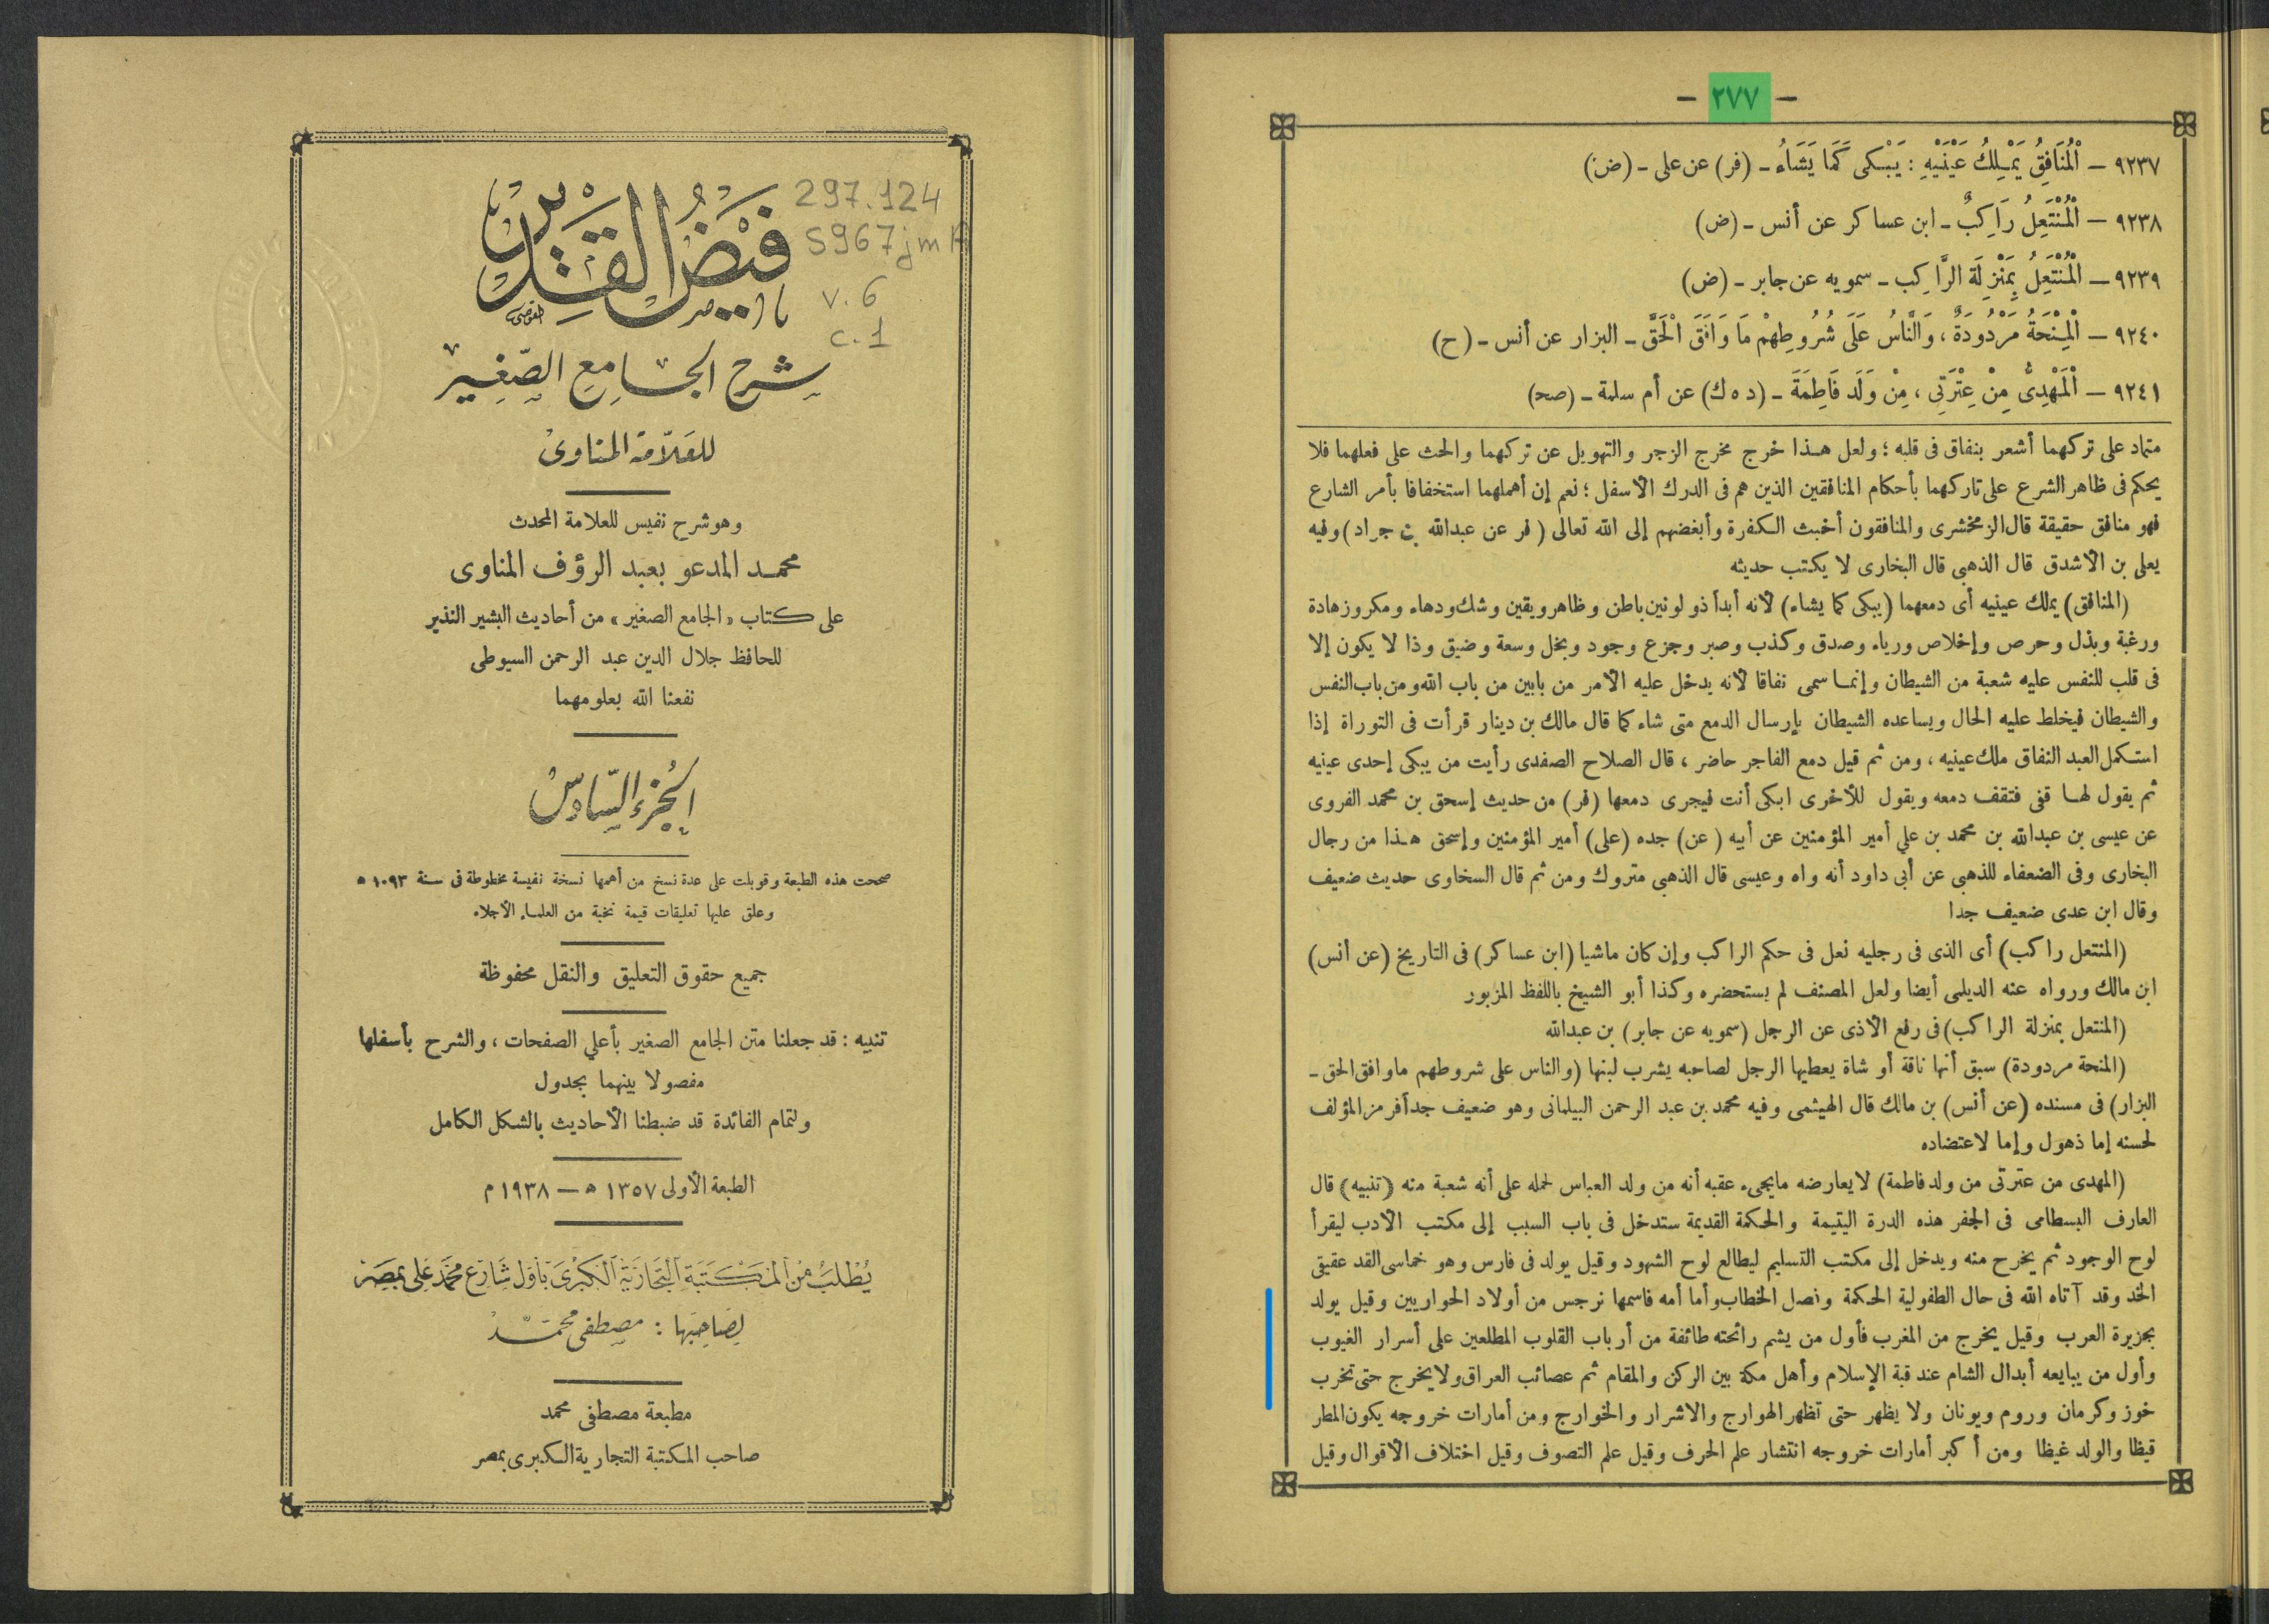 فيض القدير
297.124
S967jm
v. 6
c. 1
شرح الجامع الصغير
للعلامة المناوى
وهو شرح نفيس للعلامة المحدث
محمد المدعو بعبد الرؤف المناوى
على كتاب «الجامع الصغير» من أحاديث البشير النذير
للحافظ جلال الدين عبد الرحمن السيوطى
نفعنا الله بعلومهما
الجزء السادس
صححت هذه الطبعة وقوبلت على عدة نسخ من أهمها نسخة نفيسة مخطوطة فى سنة ١٠٩٣ ه
وعلق عليها تعليقات قيمة نخبة من العلماء الأجلاء
جميع حقوق التعليق والنقل محفوظة
تنبيه : قد جعلنا متن الجامع الصغير بأعلي الصفحات ، والشرح بأسفلها
مفصولا بينهما بجدول
ولتمام الفائدة قد ضبطنا الأحاديث بالشكل الكامل
الطبعة الأولى ١٣٥٧ ه — ١٩٣٨ م
يُطْلَبُ مِنَ المَكْتَبَةِ التِّجَارِيَّةِ الْكُبْرَى بِأَوَّل شَارِع مُحَمَّد عَلى بِمِصْر
لِصَاحِبِهَا : مصطفى محمد
مطبعة مصطفى محمد
صاحب المكتبة التجارية الكبرى بمصر
— ٢٧٧ —
٩٢٣٧ — الْمُنَافِقُ يَمْلِكُ عَيْنَيْهِ : يَبْكى كَمَا يَشَاءُ - (فر) عن على - (ض)
٩٢٣٨ — الْمُنْتَعِلُ رَاكِبٌ - ابن عساكر عن أنس - (ض)
٩٢٣٩ — الْمُنْتَعِلُ بِمَنْزِلَة الرَّاكِب - سمويه عن جابر - (ض)
٩٢٤٠ — الْمِنْحَةُ مَرْدُودَةٌ ، وَالنَّاسُ عَلَى شُرُوطِهِمْ مَا وَافَقَ الْحَقَّ - البزار عن أنس - (ح)
٩٢٤١ — الْمَهْدِىُّ مِنْ عِتْرَتِى ، مِنْ وَلَد فَاطِمَةَ - (د ه ك) عن أم سلمة - (صح)
متماد على تركهما أشعر بنفاق فى قلبه ؛ ولعل هذا خرج مخرج الزجر والتهويل عن تركهما والحث على فعلهما فلا
يحكم فى ظاهر الشرع على تاركهما بأحكام المنافقين الذين هم فى الدرك الأسفل ؛ نعم إن أهملهما استخفافا بأمر الشارع
فهو منافق حقيقة قال الزمخشرى والمنافقون أخبث الكفرة وأبغضهم إلى الله تعالى (فر عن عبدالله بن جراد) وفيه
يعلى بن الأشدق قال الذهبى قال البخارى لا يكتب حديثه
(المنافق) يملك عينيه أى دمعهما (يبكى كما يشاء) لأنه أبداً ذو لونين باطن وظاهر ويقين وشك ودهاء ومكر وزهادة
ورغبة وبذل وحرص وإخلاص ورياء وصدق وكذب وصبر وجزع وجود وبخل وسعة وضيق وذا لا يكون إلا
فى قلب للنفس عليه شعبة من الشيطان وإنما سمى نفاقا لأنه يدخل عليه الأمر من بابين من باب الله ومن باب النفس
والشيطان فيخلط عليه الحال ويساعده الشيطان بإرسال الدمع متى شاء كما قال مالك بن دينار قرأت فى التوراة إذا
استكمل العبد النفاق ملك عينيه ، ومن ثم قيل دمع الفاجر حاضر ، قال الصلاح الصفدى رأيت من يبكى إحدى عينيه
ثم يقول لها قفى فتقف دمعه ويقول للأخرى ابكى أنت فيجرى دمعها (فر) من حديث إسحق بن محمد الفروى
عن عيسى بن عبدالله بن محمد بن علي أمير المؤمنين عن أبيه (عن) جده (على) أمير المؤمنين وإسحق هذا من رجال
البخارى وفى الضعفاء للذهبى عن أبى داود أنه واه وعيسى قال الذهبي متروك ومن ثم قال السخاوى حديث ضعيف
وقال ابن عدى ضعيف جدا
(المنتعل راكب) أى الذى فى رجليه نعل فى حكم الراكب وإن كان ماشيا (ابن عساكر) فى التاريخ (عن أنس)
ابن مالك ورواه عنه الديلمى أيضا ولعل المصنف لم يستحضره وكذا أبو الشيخ باللفظ المزبور
(المنتعل بمنزلة الراكب) فى رفع الأذى عن الرجل (سمويه عن جابر) بن عبدالله
(المنحة مردودة) سبق أنها ناقة أو شاة يعطيها الرجل لصاحبه يشرب لبنها (والناس على شروطهم ما وافق الحق -
البزار) فى مسنده (عن أنس) بن مالك قال الهيثمى وفيه محمد بن عبد الرحمن البيلمانى وهو ضعيف جداً فرمز المؤلف
لحسنه إما ذهول وإما لاعتضاده
(المهدى من عترتى من ولد فاطمة) لا يعارضه ما يجىء عقبه أنه من ولد العباس لحمله على أنه شعبة منه (تنبيه) قال
العارف البسطامى فى الجفر هذه الدرة اليتيمة والحكمة القديمة ستدخل فى باب السبب إلى مكتب الأدب ليقرأ
لوح الوجود ثم يخرج منه ويدخل إلى مكتب التسليم ليطالع لوح الشهود وقيل يولد فى فارس وهو خماسى القد عقيقى
الخد وقد آتاه الله فى حال الطفولية الحكمة وفصل الخطاب وأما أمه فاسمها نرجس من أولاد الحواريين وقيل يولد
بجزيرة العرب وقيل يخرج من المغرب فأول من يشم رائحته طائفة من أرباب القلوب المطلعين على أسرار الغيوب
وأول من يبايعه أبدال الشام عند قبة الإسلام وأهل مكة بين الركن والمقام ثم عصائب العراق ولا يخرج حتى تخرب
خوز وكرمان وروم ويونان ولا يظهر حتى تظهر الهوارج والاشرار والخوارج ومن أمارات خروجه يكون المطر
قيظا والولد غيظا ومن أكبر أمارات خروجه انتشار علم الحرف وقيل علم التصوف وقيل اختلاف الأقوال وقيل